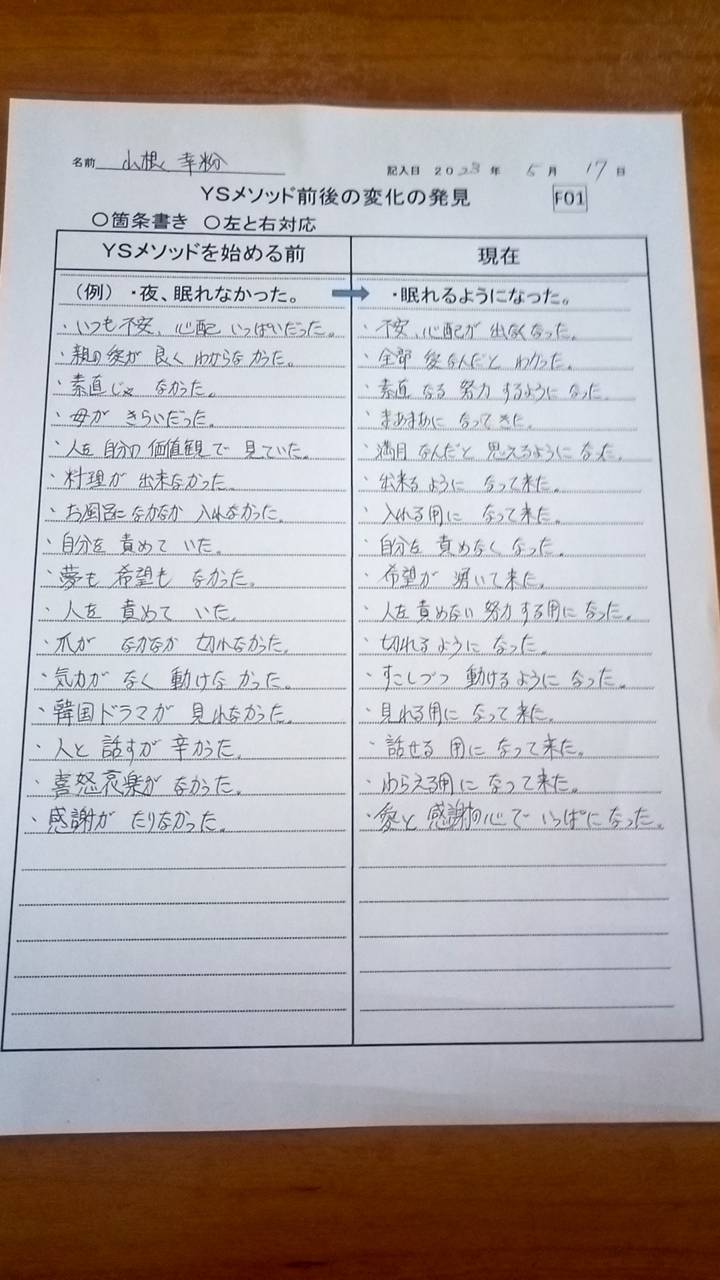 名前 山根 幸粉 記入日 2023年 5月 17日
YSメソッド前後の変化の発見 F01
○箇条書き ○左と右対応
YSメソッドを始める前 現在
(例) ・夜、眠れなかった。 → ・眠れるようになった。
・いつも不安、心配 いっぱいだった。 ・不安、心配が 出なくなった。
・親の愛が 良く わからなかった。 ・全部 愛なんだと わかった。
・素直じゃ なかった。 ・素直 なる 努力 するように なった。
・母が きらいだった。 ・まあまあに なってきた。
・人を 自分の 価値観で 見ていた。 ・満月 なんだと 思えるように なった。
・料理が 出来なかった。 ・出来る ように なって来た。
・お風呂に なかなか 入れなかった。 ・入れる用に なって来た。
・自分を 責めて いた。 ・自分を 責めなく なった。
・夢も 希望も なかった。 ・希望が 湧いて来た。
・人を 責めて いた。 ・人を責めない 努力する用に なった。
・爪が なかなか 切れなかった。 ・切れるように なった。
・気力が なく 動けな かった。 ・すこしづつ 動けるように なった。
・韓国ドラマが 見れなかった。 ・見れる用に なって来た。
・人と 話すが 辛かった。 ・話せる 用に なって来た。
・喜怒哀楽が なかった。 ・わらえる用に なって来た。
・感謝が たりなかった。 ・愛と 感謝の心で いっぱになった。